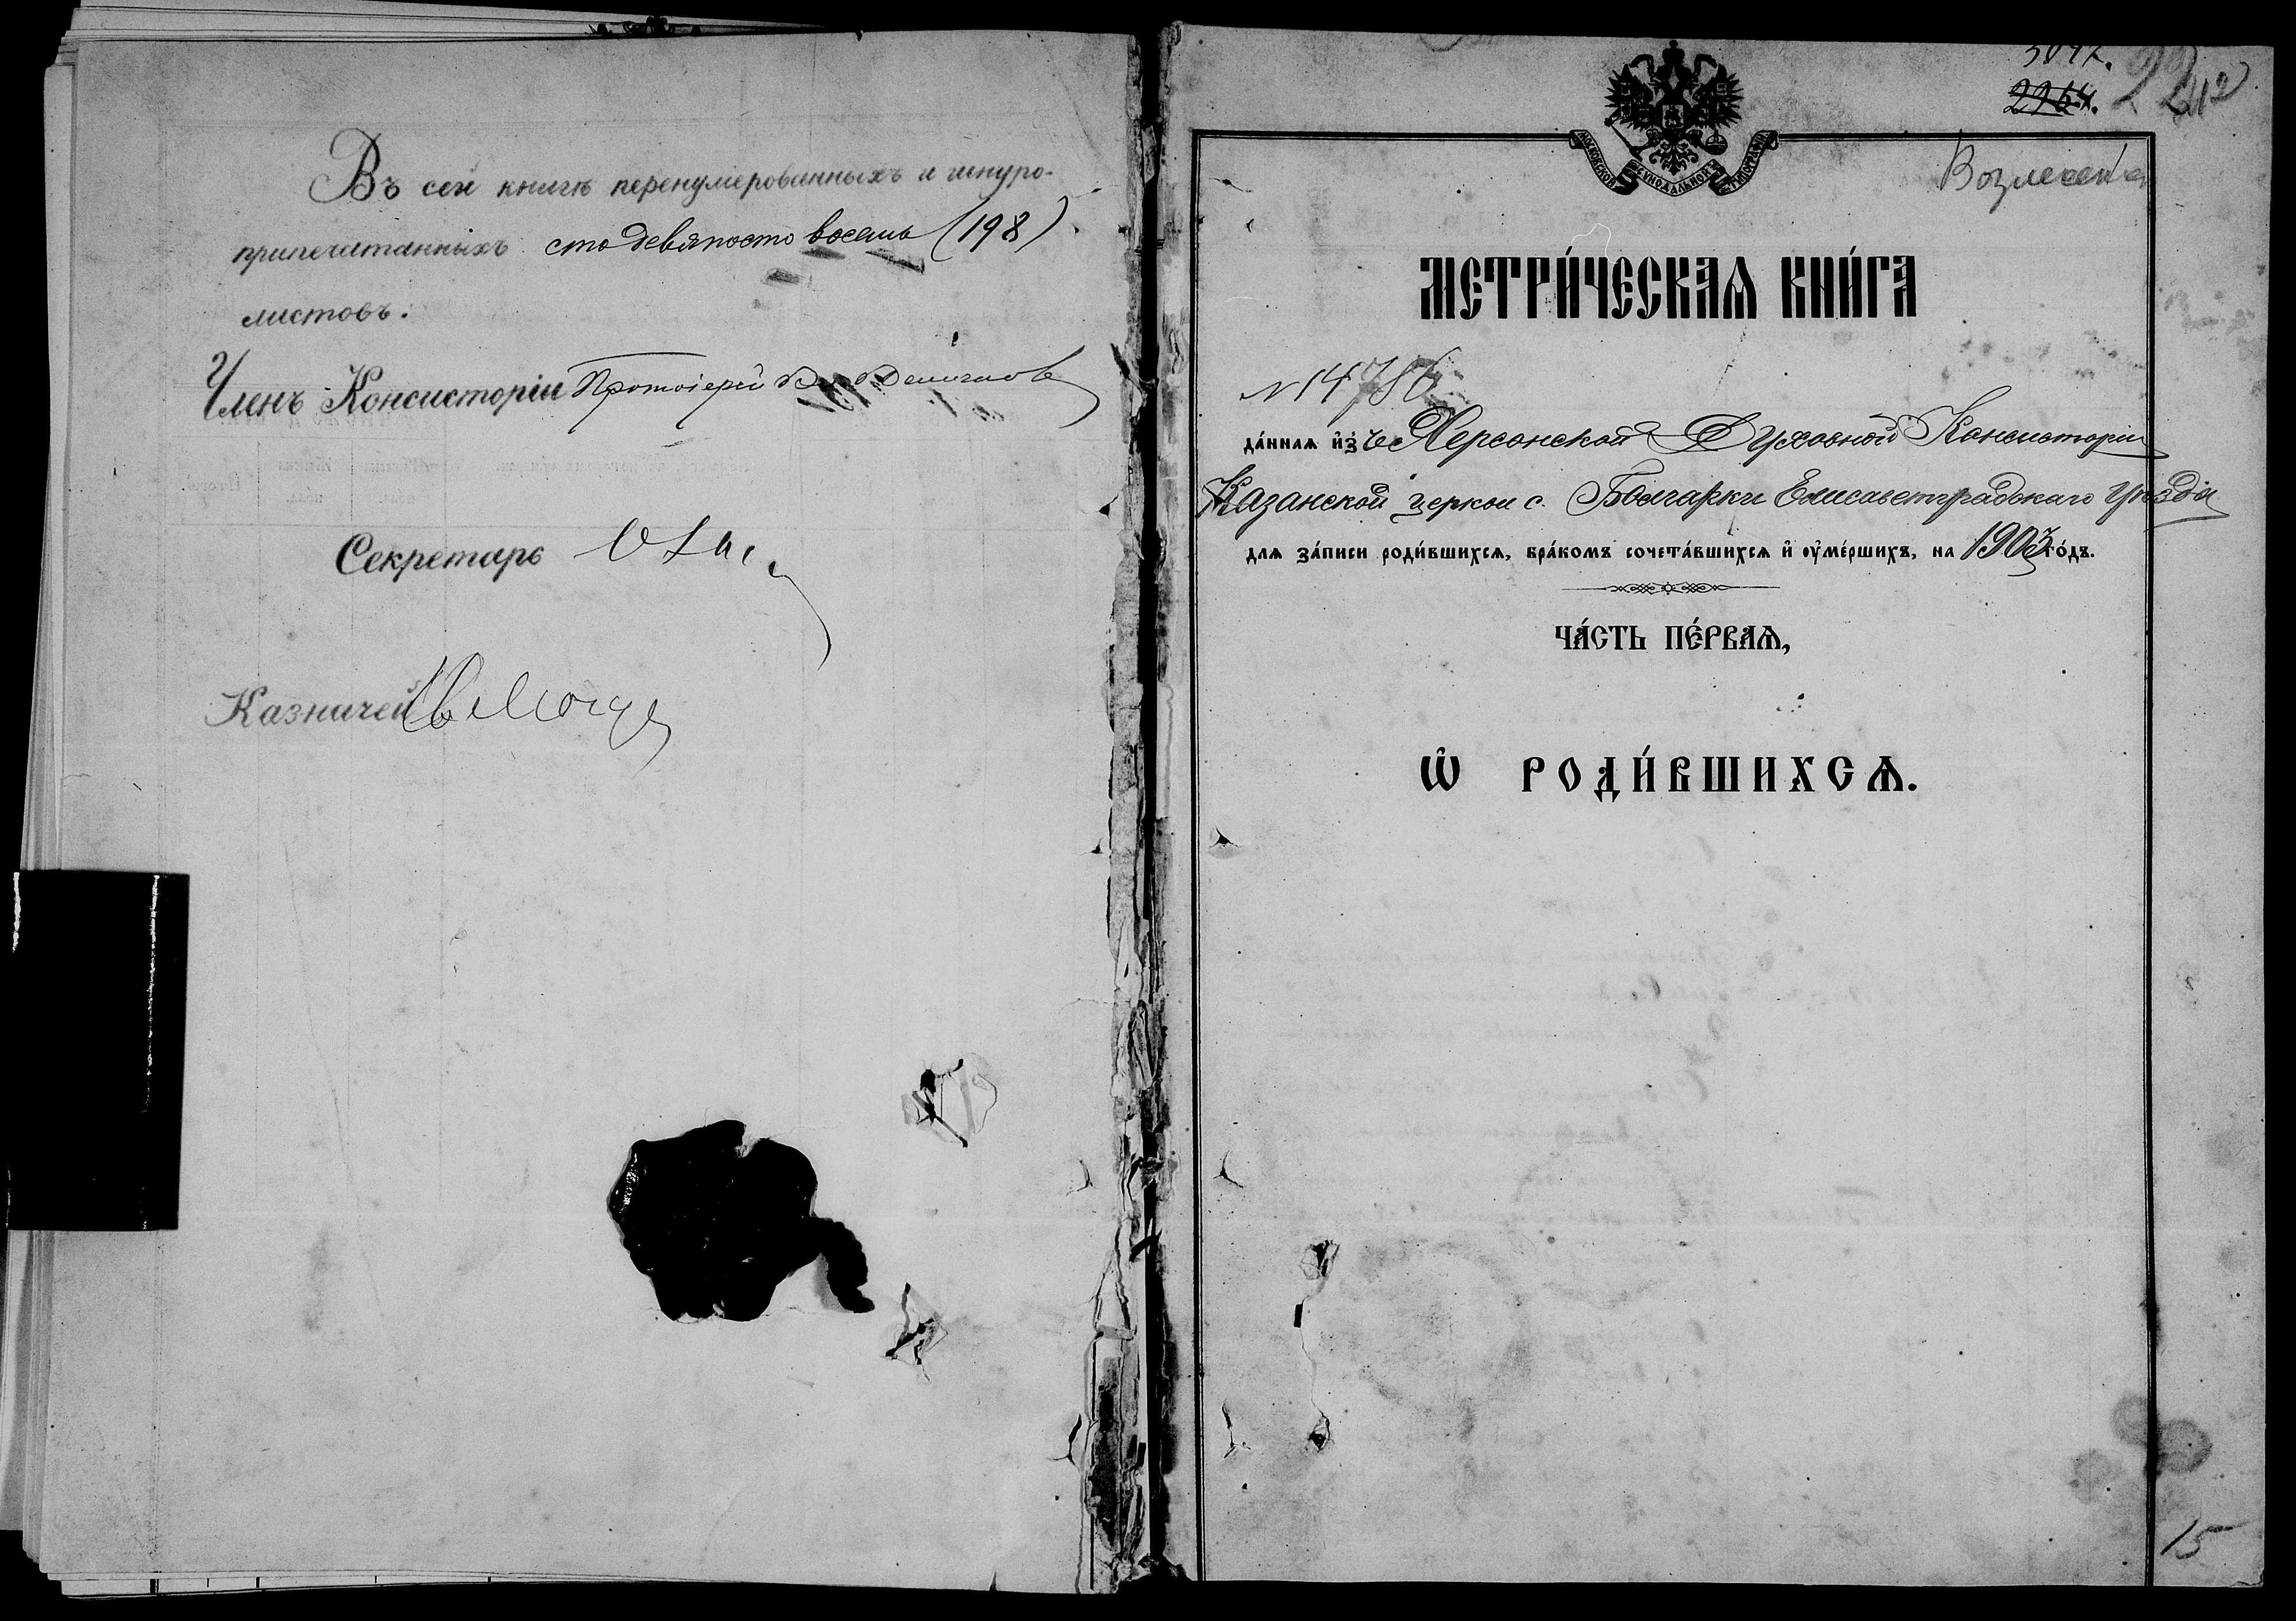 Въ сей книгѣ перенумерованныхъ и шнуро-
припечатанныхъ сто девяносто восемь (198)
листовъ.
Членъ Консисторіи Протоіерей
Секретарь
Казначей
2264.
МОСКОВСКОЙ СѴНОДАЛЬНОЙ ТИПОГРАФІИ
МЕТРИ́ЧЕСКАѦ КНИ́ГА
N 14786
да́ннаѧ и҆з̾ Херсонской Духовной Консисторіи
Казанской церкви с. Болгарки Елисаветградскаго уѣзда
для за́писи роди́вшихсѧ, бра́комъ сочета́вшихсѧ и҆ ᲂу҆ме́ршихъ, на 1903 го́дъ.
ЧА́СТЬ ПЕ́РВАѦ,
Ѽ РОДИ́ВШИХСѦ.
15